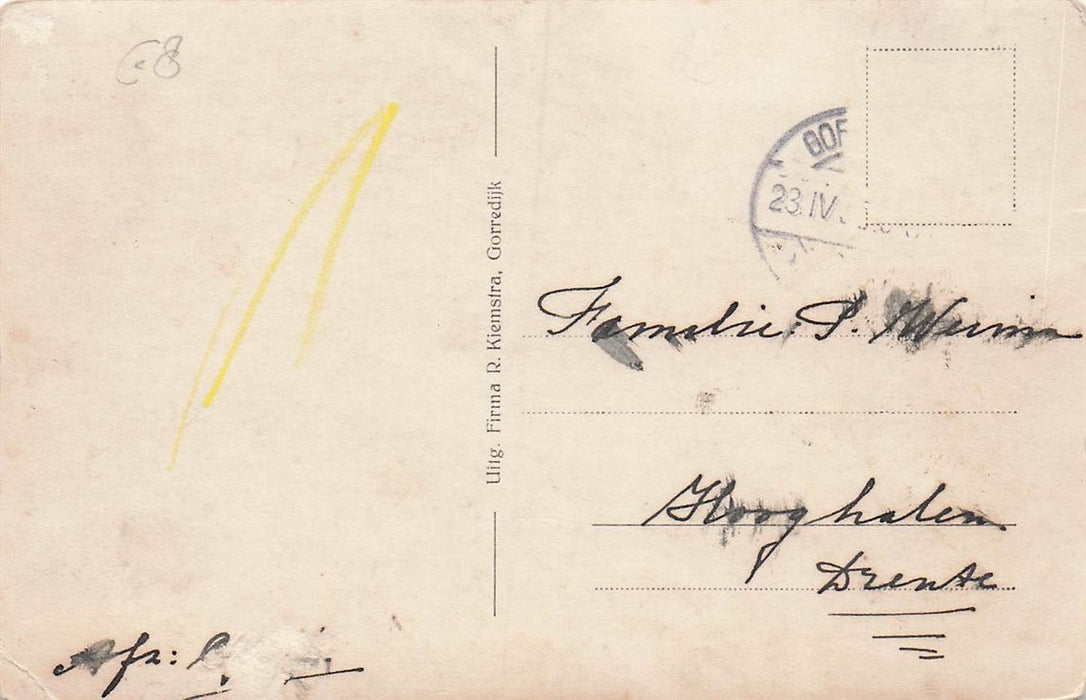 Uitg. Firma R. Kiemstra, Gorredijk
GOR
23.IV
Familie P.
Hooghalen
Drente
Afz: